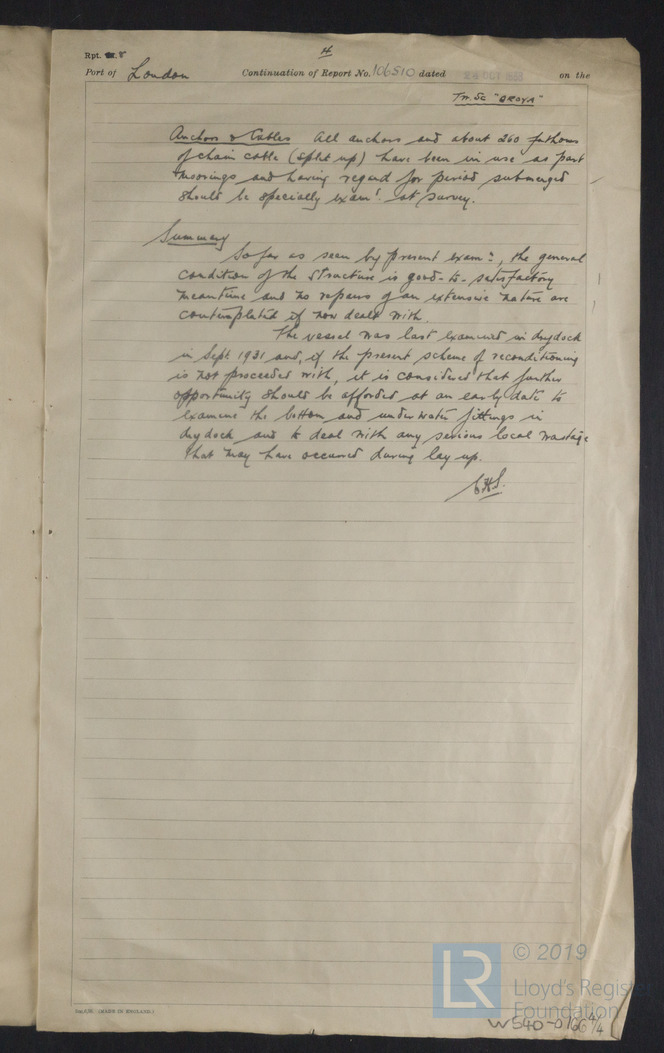 4
Rpt. 8
Port of London Continuation of Report No. 106510 dated 24 OCT 1938 on the
Tw. Sc "OROYA"
Anchors & Cables All anchors and about 260 fathoms
of chain cable (split up) have been in use as part
moorings and having regard for period submerged
should be specially exam? at survey.
Summary
So far as seen by present exam?, the general
condition of the structure is good-to-satisfactory
meantime and no repairs of an extensive nature are
contemplated if now dealt with.
The vessel was last examined in drydock
in Sept 1931 and, if the present scheme of reconditioning
is not proceeded with, it is considered that further
opportunity should be afforded at an early date to
examine the bottom and underwater fittings in
drydock and to deal with any serious local wastage
that may have occurred during lay up.
(MADE IN ENGLAND.)
© 2019
LR
Lloyd's Register
Foundation
W540-0166 4/4